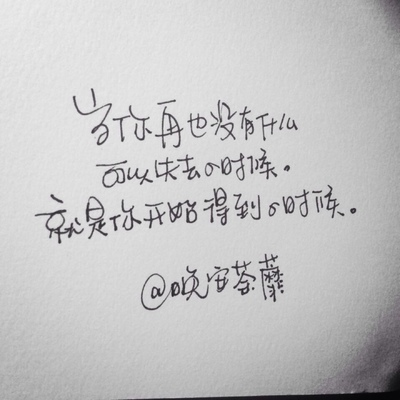 当你再也没有什么
可以失去的时候。
就是你开始得到的时候。
@晚安荼蘼